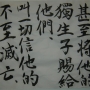 甚至將他的
獨生子賜給
他們
叫一切信他的
不至滅亡